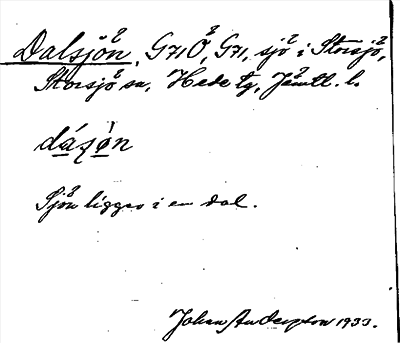 Dalsjön, G71Ö, G71, sjö i Storsjö,
Storsjö sn, Hede tg, Jämtl. l.
dáʂòn
Sjön ligger i en dal.
Johan Anderzon 1933.